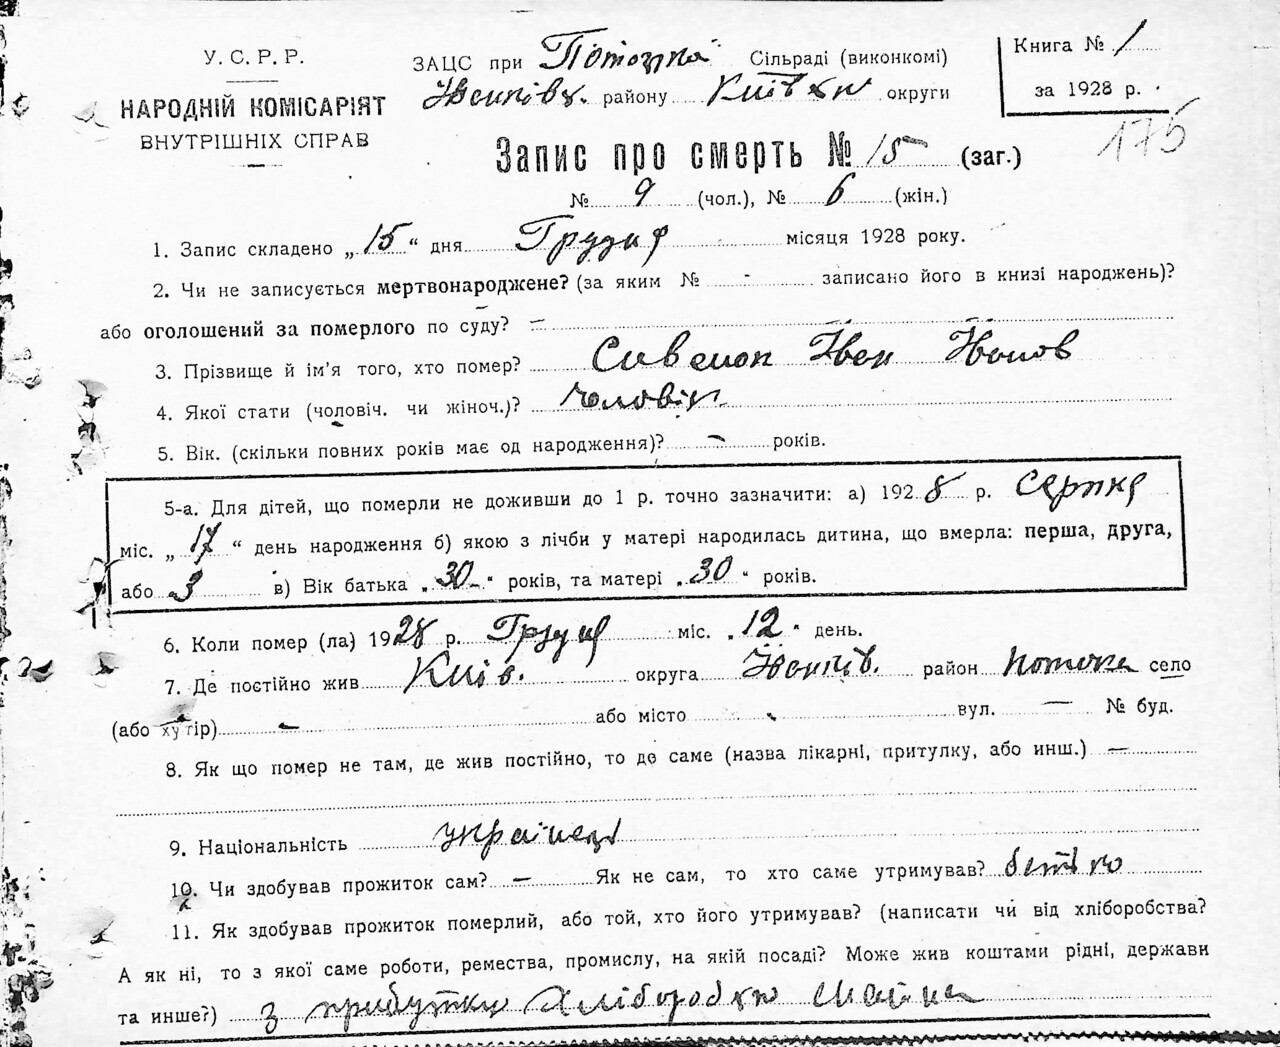 У. С. Р. Р.
НАРОДНІЙ КОМІСАРІЯТ
ВНУТРІШНІХ СПРАВ
ЗАЦС при Сільраді (виконкомі)
району округи
Книга № 1
за 1928 р.
175
Запис про смерть № 15 (заг.)
№ 9 (чол.), № 6 (жін.)
1. Запис складено „ 15 “ дня Грудня місяця 1928 року.
2. Чи не записується мертвонароджене? (за яким № - записано його в книзі народжень)?
або оголошений за померлого по суду? —
3. Прізвище й ім’я того, хто помер? Іван
4. Якої стати (чоловіч. чи жіноч.)? чоловік
5. Вік. (скільки повних років має од народження)? – років.
5-а. Для дітей, що померли не доживши до 1 р. точно зазначити: а) 1928 р. серпня
міс. „ 17 “ день народження б) якою з лічби у матері народилась дитина, що вмерла: перша, друга,
або 3 в) Вік батька „ 30 “ років, та матері „ 30 “ років.
6. Коли помер (ла) 1928 р. Грудня міс. „ 12 “ день.
7. Де постійно жив Київ. округа район село
(або хутір) - або місто - вул. — № буд.
8. Як що помер не там, де жив постійно, то де саме (назва лікарні, притулку, або инш.) —
9. Національність українець
10. Чи здобував прожиток сам? — Як не сам, то хто саме утримував? батько
11. Як здобував прожиток померлий, або той, хто його утримував? (написати чи від хліборобства?
А як ні, то з якої саме роботи, ремества, промислу, на якій посаді? Може жив коштами рідні, держави
та инше?) з прибутку